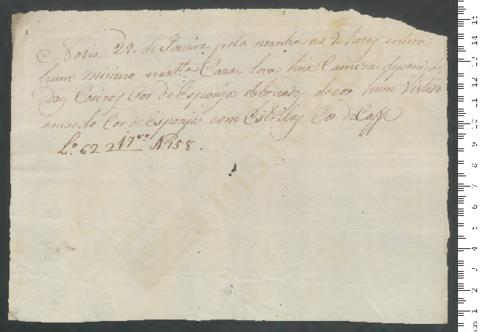 Dodia 29. de Janeiro pela manhã as 2 horas entrou
hum minino nesta Caza, com huã Camiza
dois Coeiros Cor de esponja debruados de cor hum Vistido
amarelo Cor de Esponja com Estrelas Cor de Caffe
L.º 62 217 Nº 158.